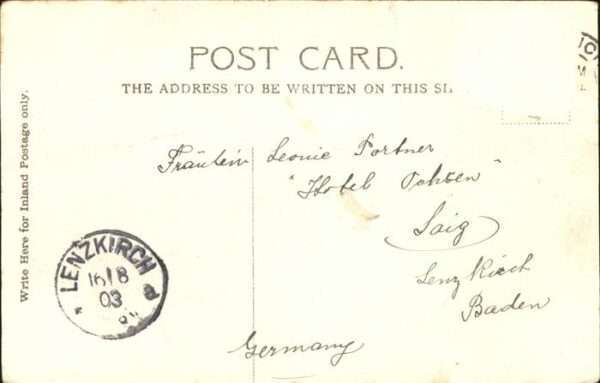 POST CARD.
THE ADDRESS TO BE WRITTEN ON THIS SI
Write Here for Inland Postage only.
Fräulein Leonie Fortner
"Hotel Ochsen"
Saig
Lenzkirch
Baden
Germany
LENZKIRCH
16/8
03